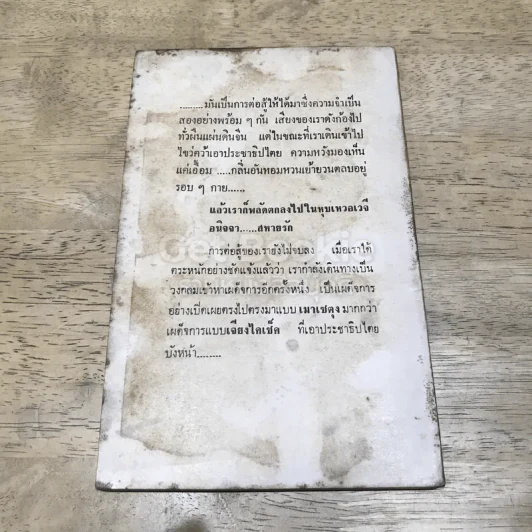 .........มันเป็นการต่อสู้ให้ได้มาซึ่งความจำเป็น
สองอย่างพร้อม ๆ กัน เสียงของเราดังก้องไป
ทั่วผืนแผ่นดินจีน แต่ในขณะที่เราเดินเข้าไป
ไขว่คว้าเอาประชาธิปไตย ความหวังมองเห็น
แค่เอื้อม .....กลิ่นอันหอมหวนเย้ายวนตลบอยู่
รอบ ๆ กาย......
แล้วเราก็พลัดตกลงไปในหุบเหวอเวจี
อนิจจา......สหายรัก
การต่อสู้ของเรายังไม่จบลง เมื่อเราได้
ตระหนักอย่างชัดแจ้งแล้วว่า เรากำลังเดินทางเป็น
วงกลมเข้าหาเผด็จการอีกครั้งหนึ่ง เป็นเผด็จการ
อย่างเปิดเผยตรงไปตรงมาแบบ เมาเซตุง มากกว่า
เผด็จการแบบเจียงไคเช็ค ที่เอาประชาธิปไตย
บังหน้า........